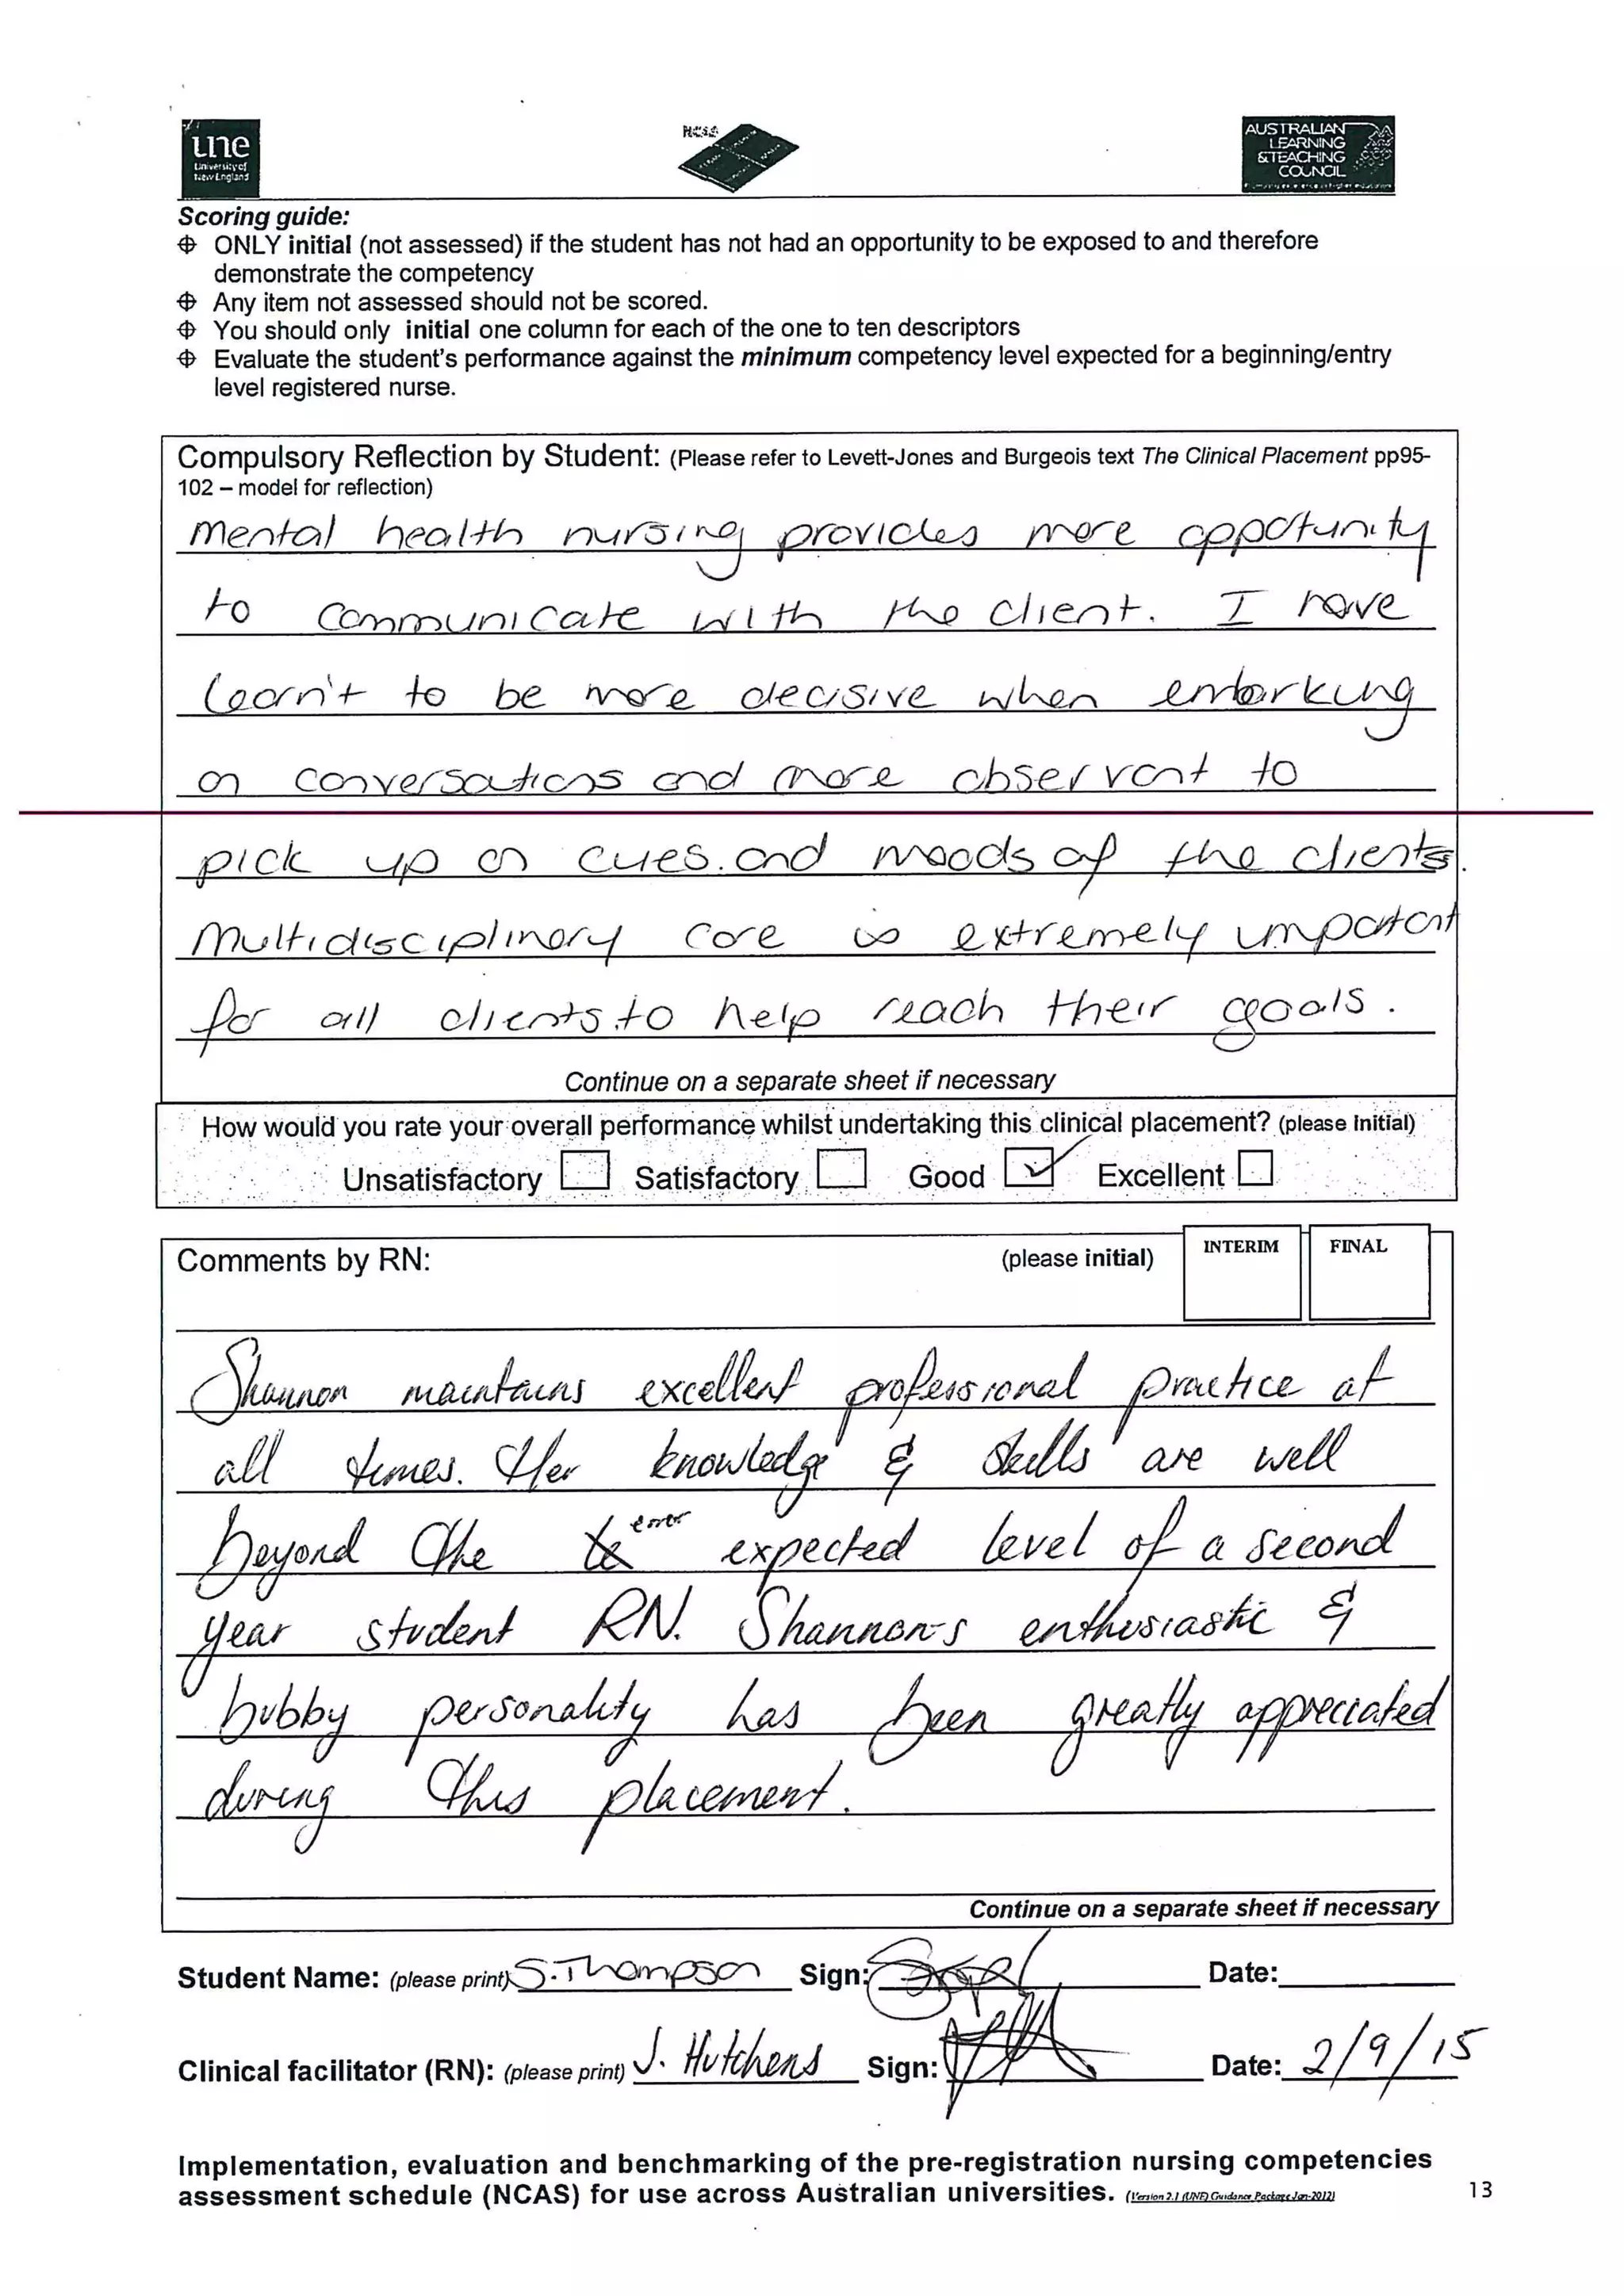 une
University of
New England
NCAS
AUSTRALIAN
LEARNING
& TEACHING
COUNCIL
Scoring guide:
ONLY initial (not assessed) if the student has not had an opportunity to be exposed to and therefore
demonstrate the competency
Any item not assessed should not be scored.
You should only initial one column for each of the one to ten descriptors
Evaluate the student's performance against the minimum competency level expected for a beginning/entry
level registered nurse.
Compulsory Reflection by Student: (Please refer to Levett-Jones and Burgeois text The Clinical Placement pp95-
102 – model for reflection)
Mental health nursing provides more oppotunity
to communicate with the client. I have
learn't to be more decisive when embarking
on conversations and more observant to
pick up on cues. and moods of the clients.
Multidisciplinary care is extremely important
for all clients to help reach their goals.
Continue on a separate sheet if necessary
How would you rate your overall performance whilst undertaking this clinical placement? (please initial)
Unsatisfactory Satisfactory Good ✓ Excellent
Comments by RN: (please initial) INTERIM FINAL
Shannon maintains excellent professional practice at
all times. Her knowledge & skills are well
beyond the te error expected level of a second
year student RN. Shannon's enthusiastic &
bubby personality has been greatly appreciated
during this placement.
Continue on a separate sheet if necessary
Student Name: (please print) S. Thompson Sign: Date:
Clinical facilitator (RN): (please print) J. Hutchens Sign: Date: 2/9/15
Implementation, evaluation and benchmarking of the pre-registration nursing competencies
assessment schedule (NCAS) for use across Australian universities. (Version 2.1 (UNE) Guidance Package Jan-2012)
13